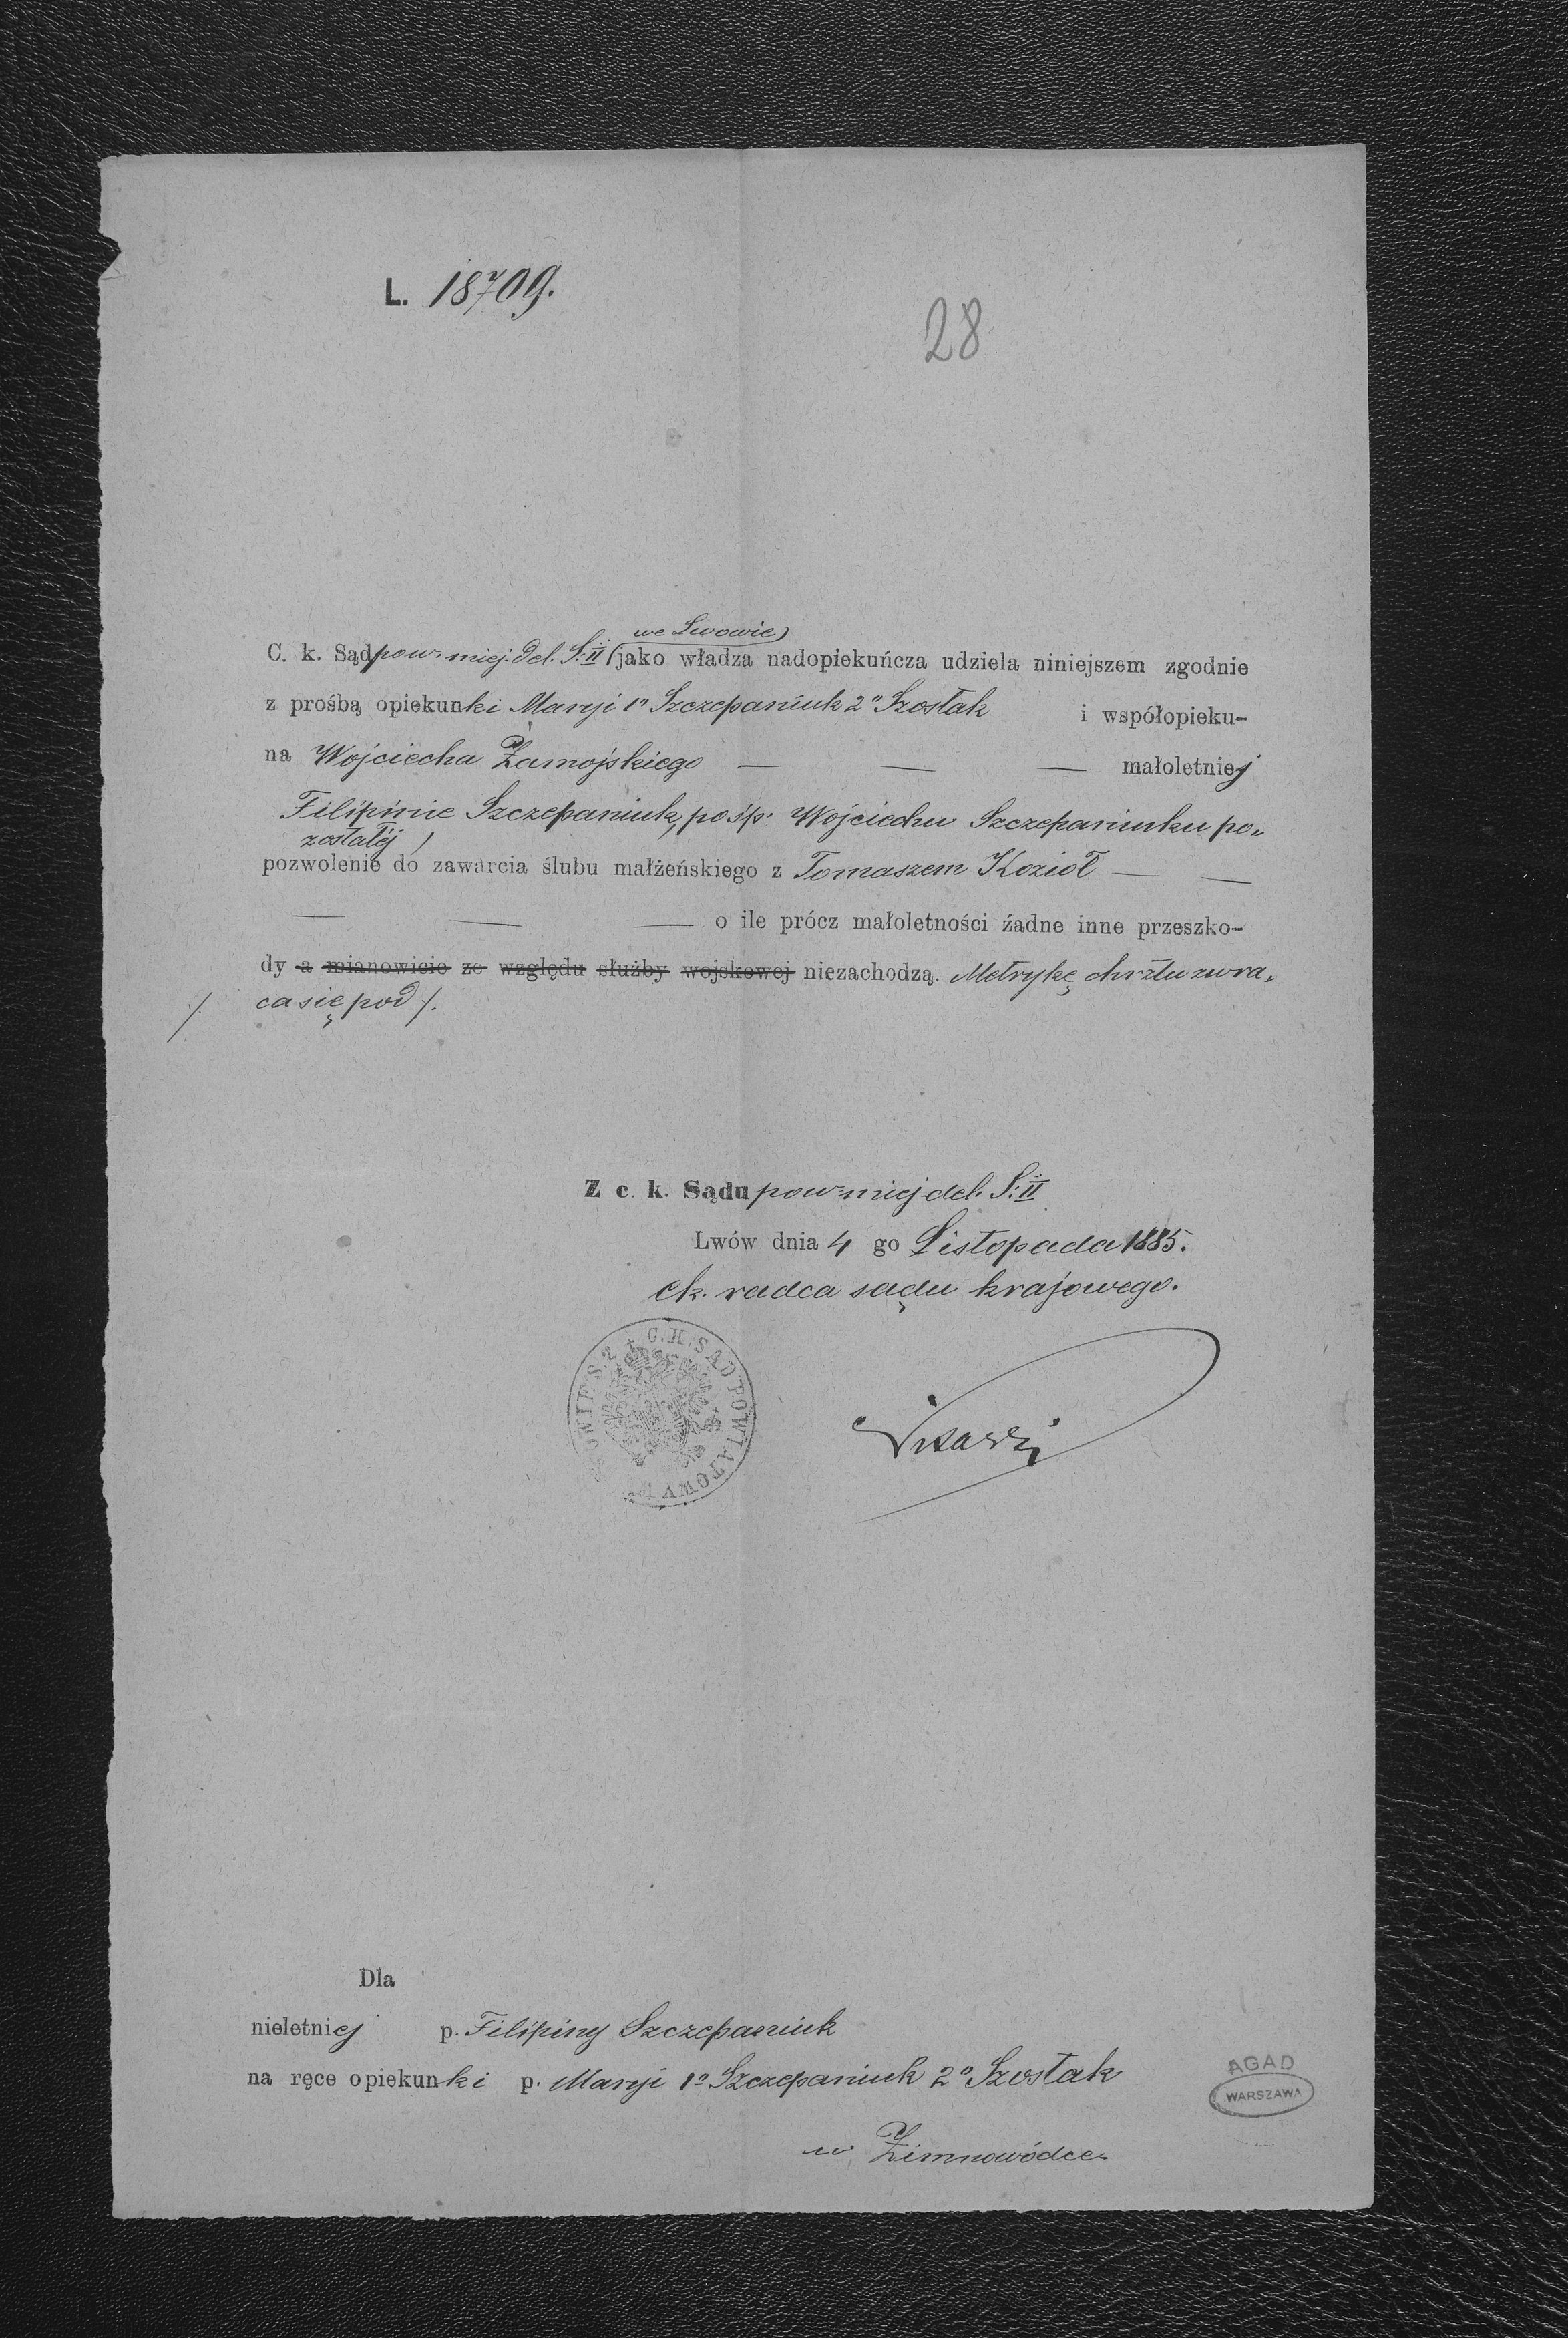 L. 18709.
28
we Lwowie)
C. k. Sąd pow. miej. del. S: II (jako władza nadopiekuńcza udziela niniejszem zgodnie
z prośbą opiekunki Maryi 1º Szczepaniuk 2º Szostak i współopieku-
na Wojciecha Zamojskiego — — — małoletniej
Filipinie Szczepaniuk, po śp. Wojciechu Szczepaniuku po-
zostałéj,
pozwolenie do zawarcia ślubu małżeńskiego z Tomaszem Kozioł — —
— — — o ile prócz małoletności źadne inne przeszko-
dy a mianowicie ze względu służby wojskowej niezachodzą. Metrykę chrztu zwra-
./. ca się pod ./.
Z c. k. Sądu pow. miej del. S: II
Lwów dnia 4 go Listopada 1885.
ck. radca sądu krajowego.
C. K. SĄD POWIATOWY
Dla
nieletniej p. Filipiny Szczepaniuk
na ręce opiekunki p. Maryi 1º Szczepaniuk 2º Szostak
w Zimnowódce
AGAD
WARSZAWA